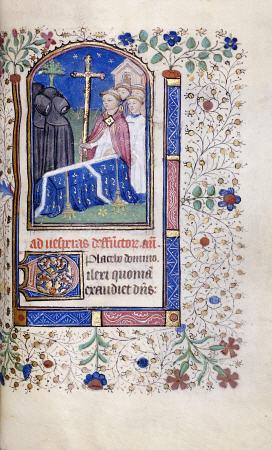 ad vesperas deffunctor. añ.
Placebo domino.
ilexi quoniã
exaudiet dñs: